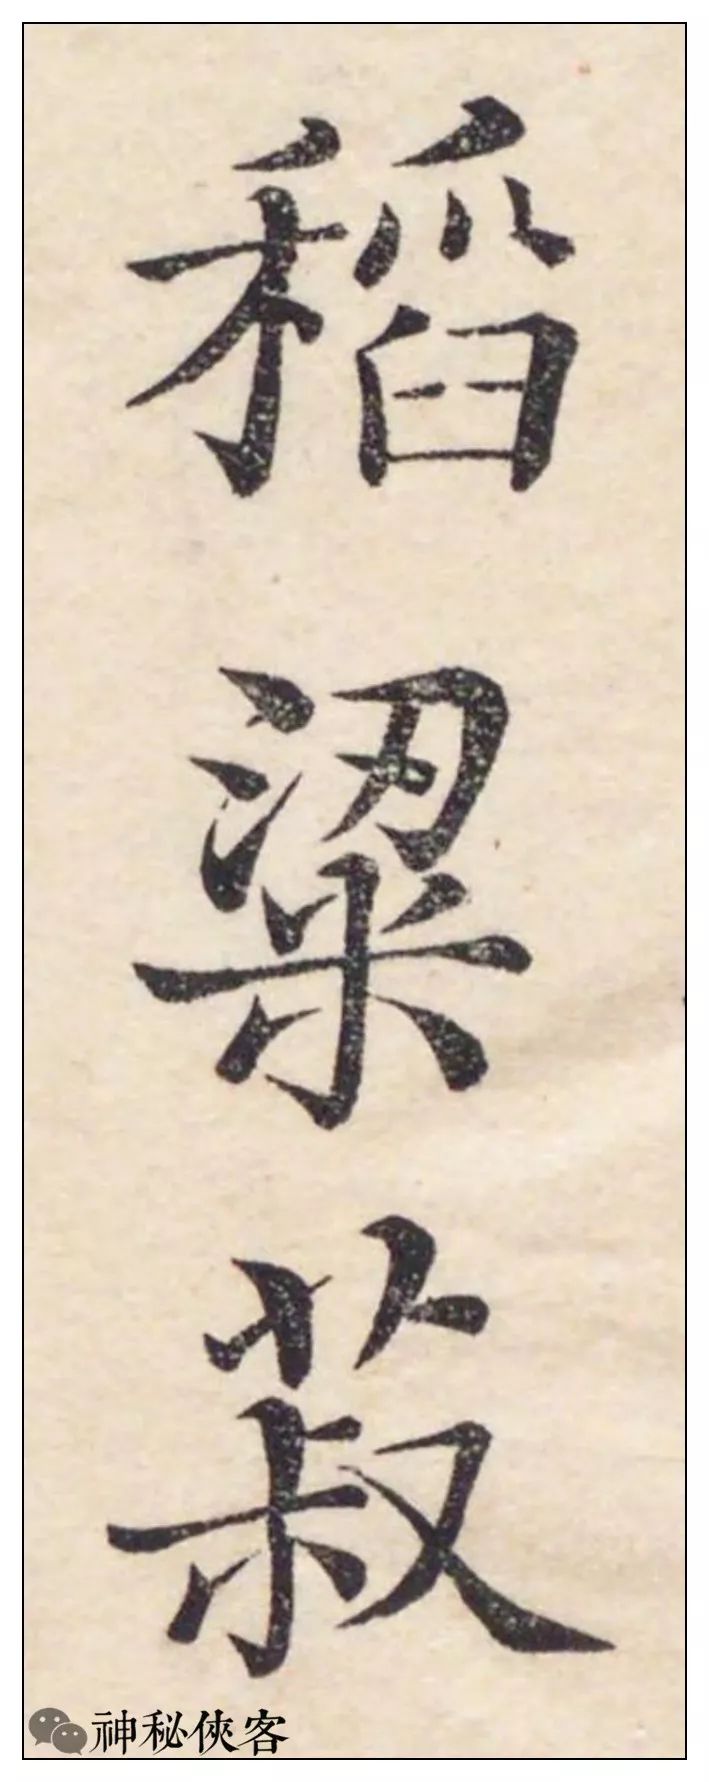 稻粱菽
神秘俠客